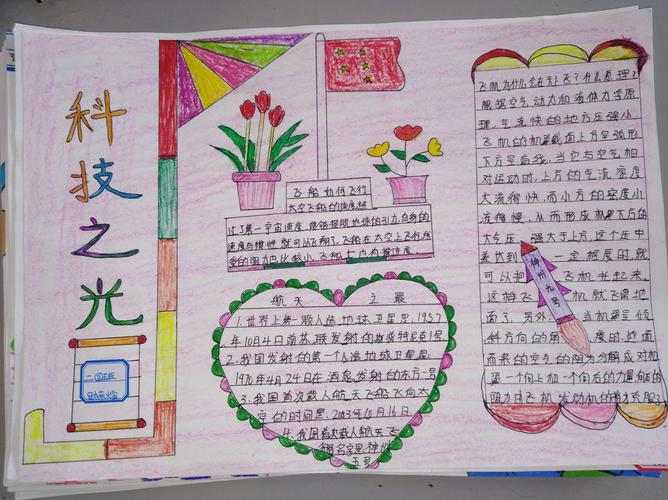 科
技
之
光
二④班
飞船如何飞行
太空飞船的速度越
过了第一宇宙速度,能够摆脱地球的引力,自身的
速度与惯性就可以飞翔了,飞船在太空上飞行所
受的阻力也比较小,飞船上也有着速度。
航天之最
1.世界上第一颗人造地球卫星是,1957
年10月4日前苏联发射的
2.我国发射的第一个人造地球卫星是
1970年4月24日在酒泉发射的东方一号
3.我国首次载人航天飞船飞向太
空的时间是,2003年10月16日
4.我国首次载人航天飞
船名字是神州
五号
飞机为什么会在天上飞?什么原理?
根据空气动力机液体力学原
理,气流快的地方压强小
飞机的机翼截面上方呈弧形
下方呈直线,当它与空气相
对运动时,上方的气流密度
大流得快,而下方的密度小
流得慢,从而形成机翼下方的
大气压强大于上方,这个压中
差达到一定程度时,就
可以把飞机托起来,
这样飞机就飞离地
面了,另外,当机翼呈倾
斜方向的角度时,迎面
而来的空气的阻力分解成对机
翼一个向上和一个向后的力量,向后的
阻力由飞机发动机的
神州九号